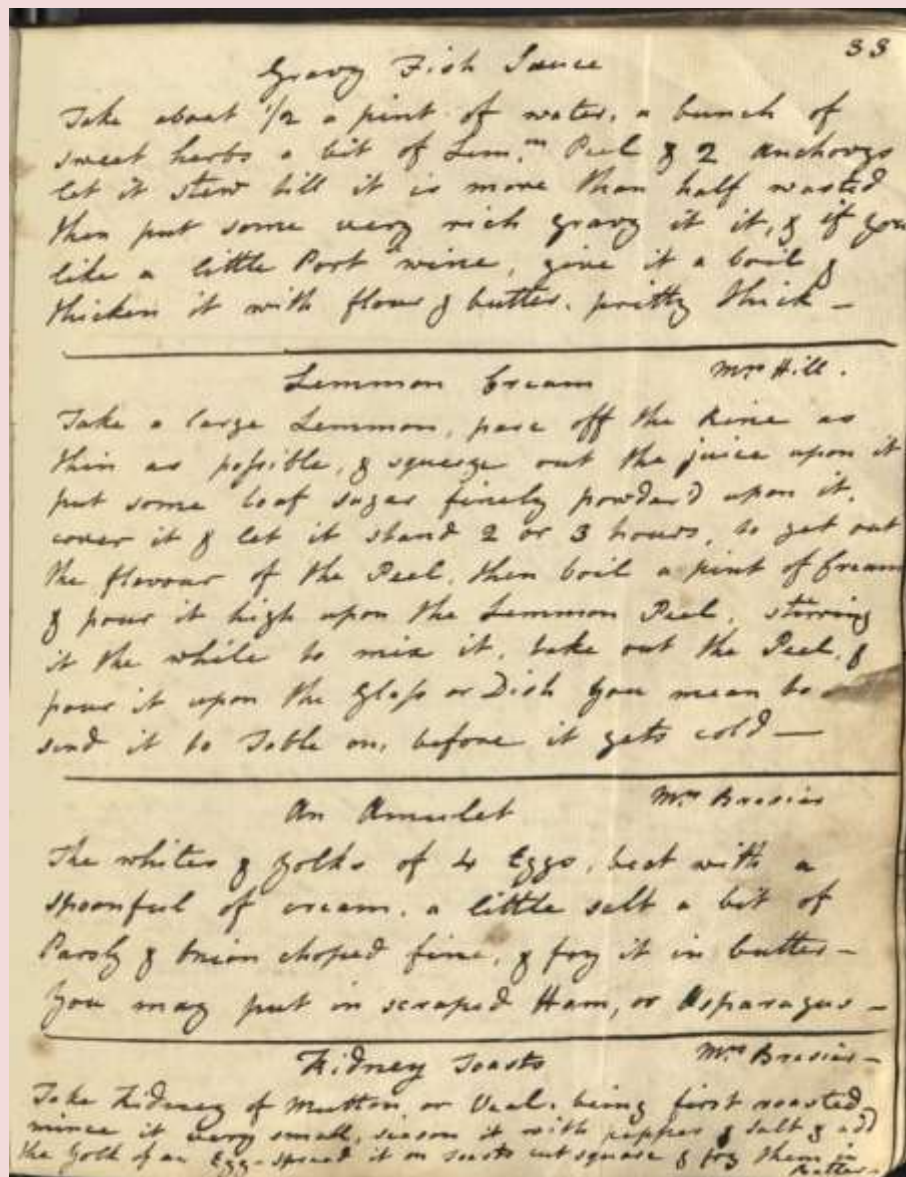 33
Gravy Fish Sauce
Take about 1/2 a pint of water, a bunch of
sweet herbs a bit of Lem.ⁿ Peel & 2 Anchovys
let it stew till it is more than half wasted
then put some very rich gravy it it, & if you
like a little Port wine, give it a boil &
thicken it with flour & butter. pritty thick —
Lemmon Cream Mrs Hill.
Take a large Lemmon, pare off the Rine as
thin as possible, & squeege out the juice upon it
put some loaf sugar finely powder'd upon it,
cover it & let it stand 2 or 3 hours, to get out
the flavour of the Peel, then boil a pint of Cream
& pour it high upon the Lemmon Peel, stirring
it the while to mix it, take out the Peel, &
pour it upon the Glass or Dish you mean to
send it to Table on, before it gets cold —
An Amulet Mrs Brasier
The whites & yolks of 4 Eggs, beat with a
spoonful of cream, a little salt a bit of
Parsly & Onion choped fine, & fry it in butter —
you may put in scraped Ham, or Asparagus —
Kidney Toasts Mrs Brasier —
Take Kidney of Mutton, or Veal, being first roasted
mince it very small, season it with pepper & salt & add
the yolk of an Egg - spread it on toasts cut square & fry them in
butter -